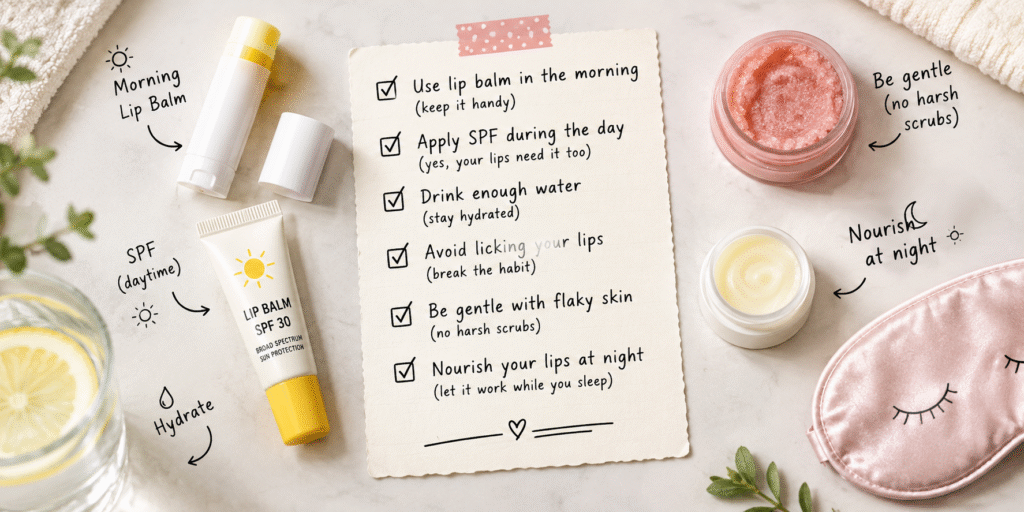 Morning
Lip Balm
SPF
(daytime)
Hydrate
LIP BALM
SPF 30
BROAD SPECTRUM
SUN PROTECTION
Use lip balm in the morning
(keep it handy)
Apply SPF during the day
(yes, your lips need it too)
Drink enough water
(stay hydrated)
Avoid licking your lips
(break the habit)
Be gentle with flaky skin
(no harsh scrubs)
Nourish your lips at night
(let it work while you sleep)
Be gentle
(no harsh
scrubs)
Nourish
at night